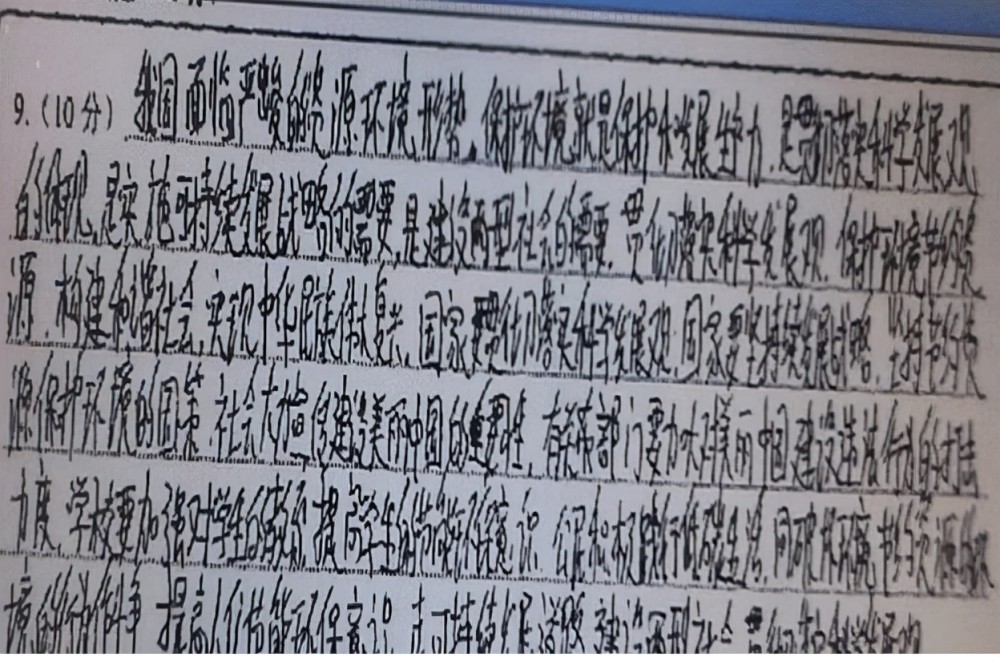 9.(10分) 我国面临严峻的资源环境形势,保护环境就是保护和发展生产力,是贯彻落实科学发展观
的体现,是实施可持续发展战略的需要,是建设两型社会的需要.贯彻落实科学发展观,保护环境节约资
源,构建和谐社会,实现中华民族伟大复兴,国家要贯彻落实科学发展观,国家要坚持持续发展战略,坚持节约资
源保护环境的国策,社会大力宣传建设美丽中国的重要性,有关部门要加大对美丽中国建设违法行为的打击
力度,学校要加强对学生的教育,提高学生的节能环保意识,公民积极践行低碳生活,同破坏环境,节约资源的
境的行为作斗争,提高人们节能环保意识,走可持续发展道路,建设两型社会